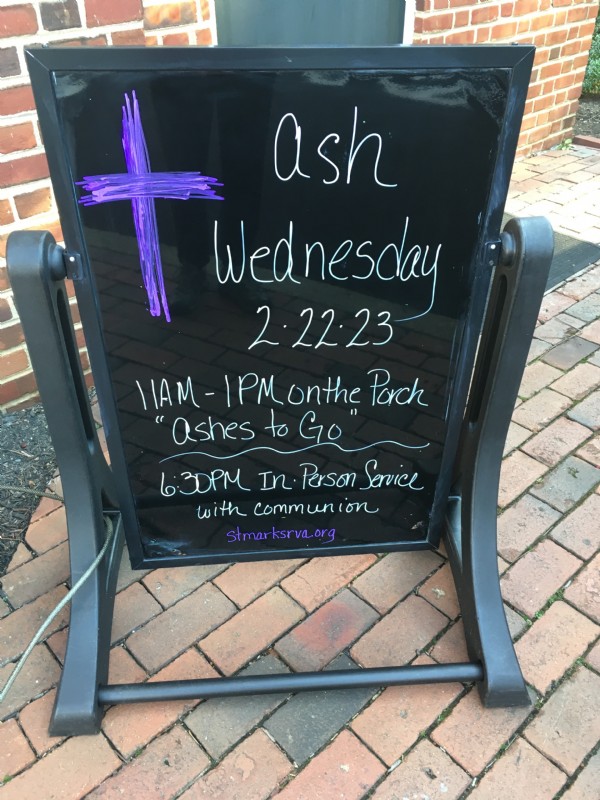 Ash
Wednesday
2.22.23
11AM - 1PM on the Porch
"Ashes to Go"
6:30PM In-Person Service
with communion
stmarksrva.org